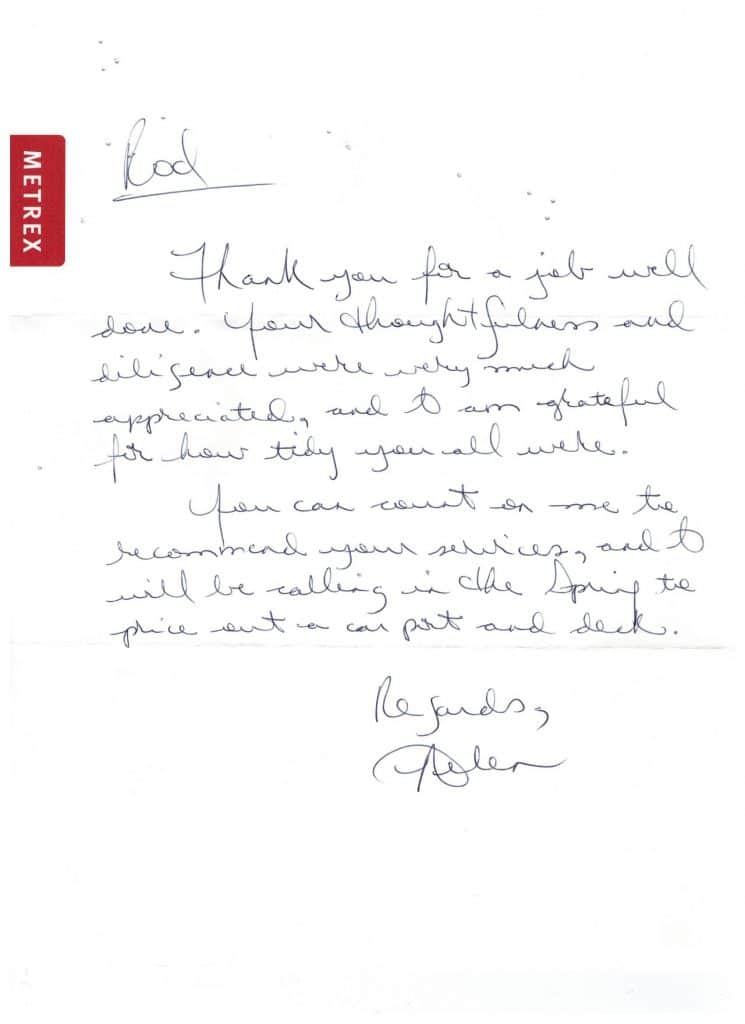 METREX
Rod
Thank you for a job well
done. Your thoughtfulness and
diligence were very much
appreciated, and I am grateful
for how tidy you all were.
You can count on me to
recommend your services, and I
will be calling in the Spring to
price out a car port and deck.
Regards,
Helen